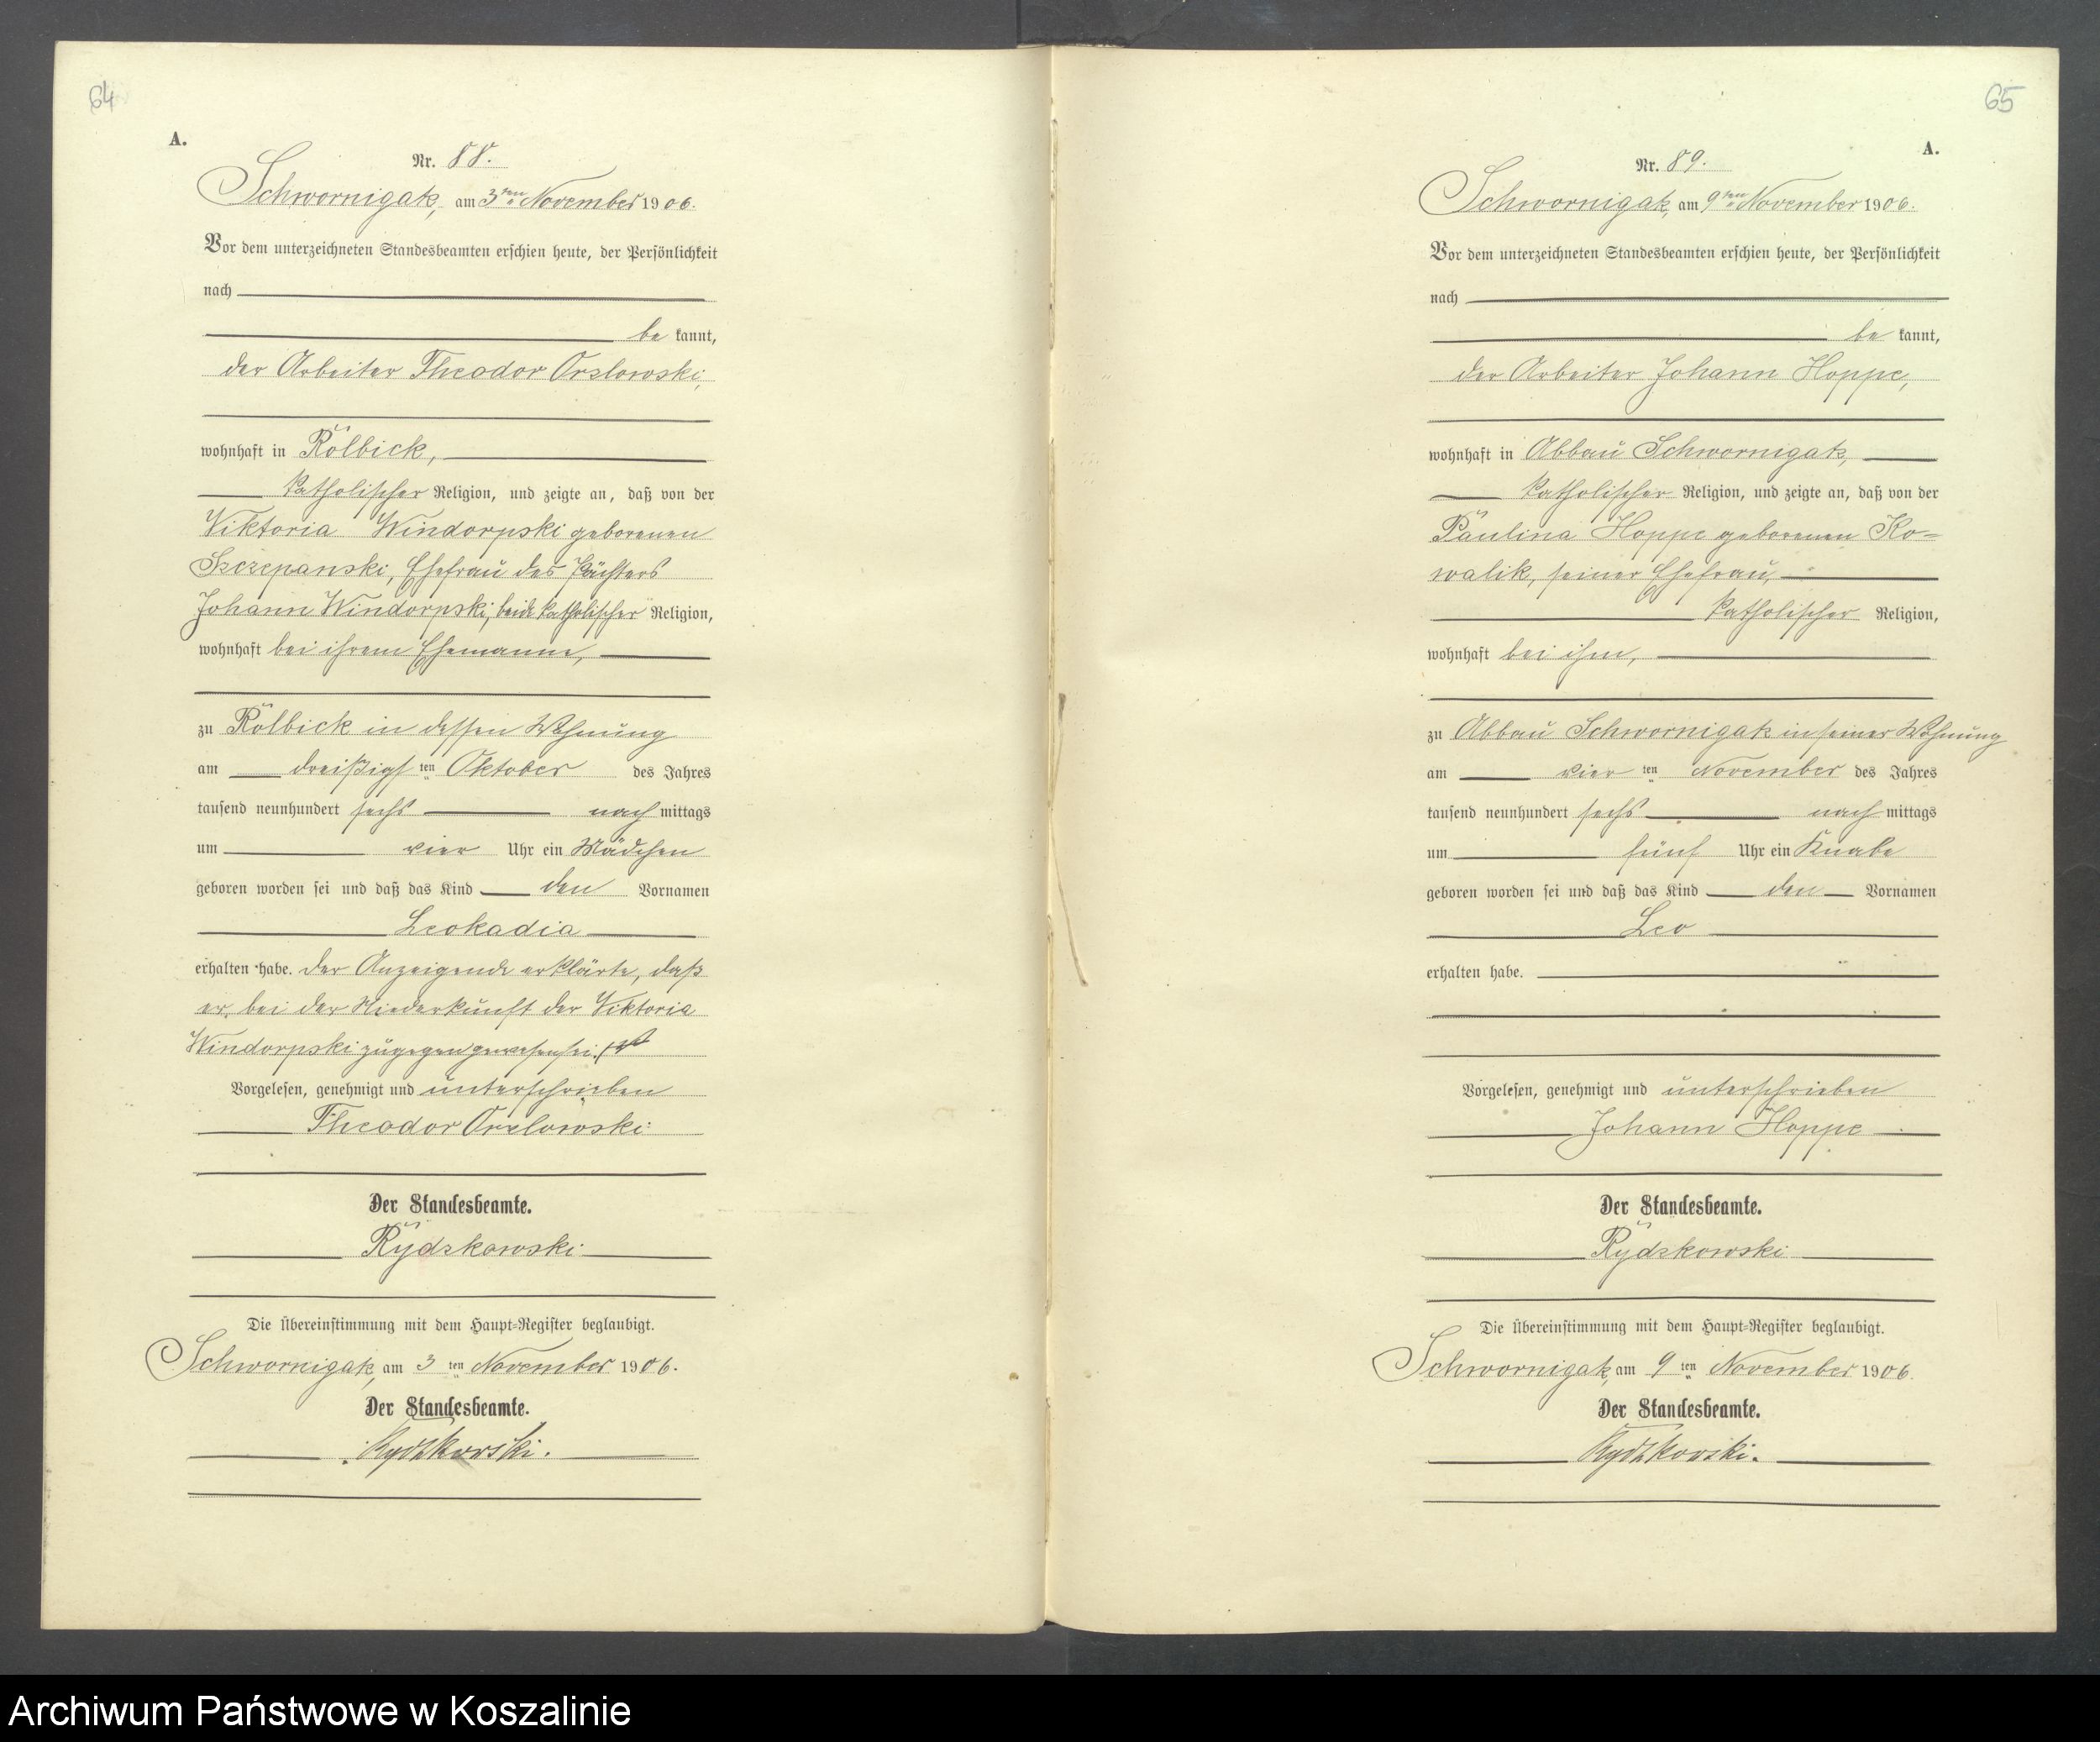 64
A.
Nr. 88.
Schwornigatz, am 3ten November 1906.
Vor dem unterzeichneten Standesbeamten erschien heute, der Persönlichkeit
nach
be kannt,
der Arbeiter Theodor Orslowski,
wohnhaft in Rölbick,
katholischer Religion, und zeigte an, daß von der
Viktoria Windorpski geborenen
Szczepanski, Ehefrau des Pächters
Johann Windorpski, beide katholischer Religion,
wohnhaft bei ihrem Ehemanne,
zu Rölbick in dessen Wohnung
am dreißigsten Oktober des Jahres
tausend neunhundert sechs nach mittags
um vier Uhr ein Mädchen
geboren worden sei und daß das Kind den Vornamen
Leokadia
erhalten habe. Der Anzeigende erklärte, daß
er bei der Niederkunft der Viktoria
Windorpski zugegen gewesen sei.
Vorgelesen, genehmigt und unterschrieben
Theodor Orslowski
Der Standesbeamte.
Rydzkowski
Die Übereinstimmung mit dem Haupt-Register beglaubigt.
Schwornigatz, am 3 ten November 1906.
Der Standesbeamte.
Rydzkowski.
65
A.
Nr. 89.
Schwornigatz, am 9ten November 1906.
Vor dem unterzeichneten Standesbeamten erschien heute, der Persönlichkeit
nach
be kannt,
der Arbeiter Johann Hoppe,
wohnhaft in Abbau Schwornigatz,
katholischer Religion, und zeigte an, daß von der
Paulina Hoppe geborenen Ko=
walik, seiner Ehefrau,
katholischer Religion,
wohnhaft bei ihm,
zu Abbau Schwornigatz in seiner Wohnung
am vier ten November des Jahres
tausend neunhundert sechs nach mittags
um fünf Uhr ein Knabe
geboren worden sei und daß das Kind den Vornamen
Leo
erhalten habe.
Vorgelesen, genehmigt und unterschrieben
Johann Hoppe
Der Standesbeamte.
Rydzkowski
Die Übereinstimmung mit dem Haupt-Register beglaubigt.
Schwornigatz, am 9 ten November 1906.
Der Standesbeamte.
Rydzkowski.
Archiwum Państwowe w Koszalinie